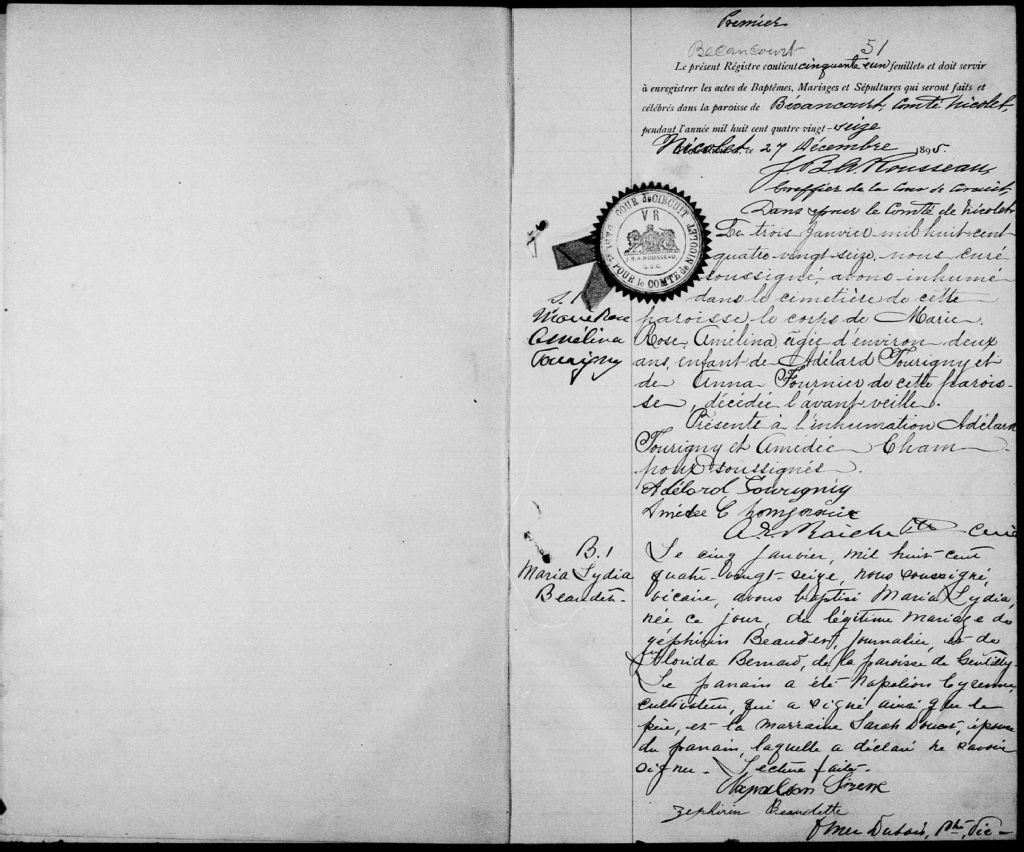 Premier
Becancourt 51
Le présent Régistre contient cinquante eun feuillets et doit servir
à enregistrer les actes de Baptêmes, Mariages et Sépultures qui seront faits et
célébrés dans la paroisse de Bécancourt, Comté Nicolet,
pendant l'année mil huit cent quatre vingt-seize
Nicolet ce 27 Décembre 1895
J B A Rousseau,
Greffier de la Cour de Circuit,
Dans & pour le Comté de Nicolet
COUR de CIRCUIT
DANS et POUR le COMTÉ de NICOLET
VR
J.B.A. ROUSSEAU,
G.C.C.
S. 1
Marie Rose
Amélina
Tourigny
Le trois Janvier mil huit-cent
quatre-vingt-seize, nous curé
soussigné, avons inhumé
dans le cimetière de cette
paroisse le corps de Marie
Rose, Amélina, âgée d'environ deux
ans, enfant de Adélard Tourigny et
de Anna Fournier de cette parois-
se, décédée l'avant veille.
Présents à l'inhumation Adélard
Tourigny et Amédée Cham-
poux soussignés.
Adélard Tourigny
Amédee
ptre curé
B. 1
Maria Lydia
Beaudet-
Le cinq Janvier, mil huit-cent
quatre-vingt-seize, nous soussigné,
vicaire, avons baptisé Maria Lydia,
née ce jour, du légitime mariage de
Zéphirin Beaudet, journalier, et de
Florida Bernard, de la paroisse de Gentilly.
Le parrain a été Napoléon Cyrenne,
cultivateur, qui a signé ainsi que le
père, et la marraine Sarah Doucet, épouse
du parrain, laquelle a déclaré ne savoir
signer- Lecture faite-
Napoleon Sirene
Zephirin Beaudette
Omer Dubois, Ptre, Vic-